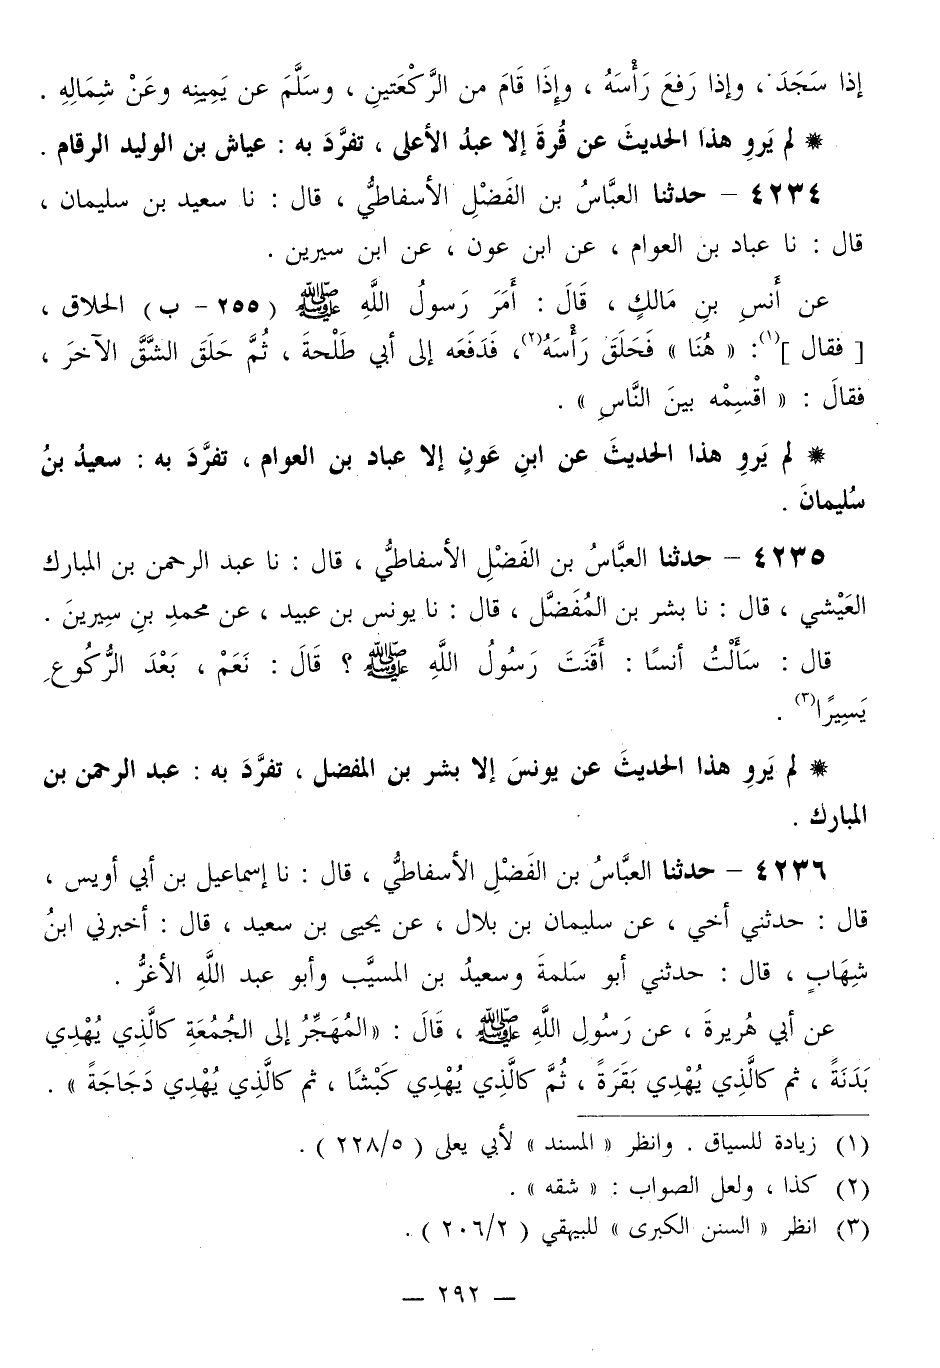 إذا سَجَدَ ، وإذا رَفعَ رَأْسَهُ ، وإِذَا قَامَ من الرَّكْعَتينِ ، وسَلَّمَ عن يَمِينِه وعَنْ شِمَالِهِ .
* لم يَروِ هذا الحديثَ عن قُرةَ إلا عبدُ الأعلى ، تفرَّدَ به : عياش بن الوليد الرقام .
٤٢٣٤ – حدثنا العبَّاسُ بن الفَضْلِ الأسفاطيُّ ، قال : نا سعيد بن سليمان ،
قال : نا عباد بن العوام ، عن ابن عون ، عن ابن سيرين .
عن أَنسِ بنِ مَالكٍ ، قَالَ : أَمَرَ رَسولُ اللَّهِ ﷺ ( ٢٥٥ – ب ) الحلاق ،
[ فقال ](١): « هُنَا » فَحَلقَ رَأْسَهُ(٢)، فَدَفعَه إلى أبي طَلْحةَ ، ثُمَّ حَلقَ الشَّقَّ الآخرَ ،
فقالَ : « اقْسِمْه بينَ النَّاسِ » .
* لم يَروِ هذا الحديثَ عن ابنِ عَونٍ إلا عباد بن العوام ، تفرَّدَ به : سعيدُ بنُ
سُليمانَ .
٤٢٣٥ – حدثنا العبَّاسُ بن الفَضْلِ الأسفاطيُّ ، قال : نا عبد الرحمن بن المبارك
العَيْشي ، قال : نا بشر بن المُفَضَّل ، قال : نا يونس بن عبيد ، عن محمدِ بنِ سِيرينَ .
قال : سَأَلْتُ أنسًا : أَقَنَتَ رَسُولُ اللَّهِ ﷺ ؟ قَالَ : نَعَمْ ، بَعْدَ الرُّكُوعِ
يَسِيرًا(٣) .
* لم يَروِ هذا الحديثَ عن يونسَ إلا بشر بن المفضل ، تفرَّدَ به : عبد الرحمن بن
المبارك .
٤٢٣٦ – حدثنا العبَّاسُ بن الفَضْلِ الأسفاطيُّ ، قال : نا إسماعيل بن أبي أويس ،
قال : حدثني أخي ، عن سليمان بن بلال ، عن يحيى بن سعيد ، قال : أخبرني ابنُ
شِهَابٍ ، قال : حدثني أبو سَلمةَ وسعيدُ بن المسيَّب وأبو عبد اللَّهِ الأغرُّ .
عن أبي هُريرةَ ، عن رَسُولِ اللَّهِ ﷺ ، قَالَ : «المُهَجِّرُ إلى الجُمُعَةِ كالَّذِي يُهْدِي
بَدَنَةً ، ثم كالَّذِي يُهْدِي بَقَرَةً ، ثُمَّ كالَّذِي يُهْدِي كَبْشًا ، ثم كالَّذِي يُهْدِي دَجَاجَةً » .
(١) زيادة للسياق . وانظر « المسند » لأبي يعلى ( ٢٢٨/٥ ) .
(٢) كذا ، ولعل الصواب : « شقه » .
(٣) انظر « السنن الكبرى » للبيهقي ( ٢٠٦/٢ ) .
— ٢٩٢ —